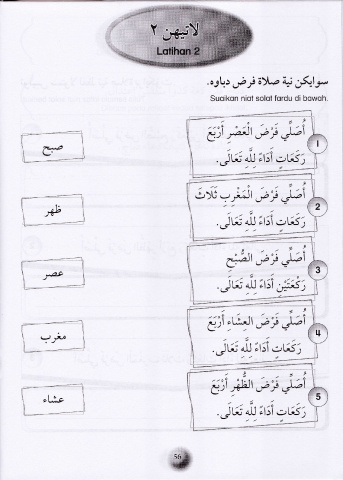 لاتيهن ٢
Latihan 2
سوايكن نية صلاة فرض دباوه.
Suaikan niat solat fardu di bawah.
أُصَلِّي فَرْضَ الْعَصْرِ أَرْبَعَ
رَكَعَاتٍ أَدَاءً لِلَّهِ تَعَالَى.
1
صبح
أُصَلِّي فَرْضَ الْمَغْرِبِ ثَلَاثَ
رَكَعَاتٍ أَدَاءً لِلَّهِ تَعَالَى.
2
ظهر
أُصَلِّي فَرْضَ الصُّبْحِ
رَكْعَتَيْنِ أَدَاءً لِلَّهِ تَعَالَى.
3
عصر
أُصَلِّي فَرْضَ الْعِشَاءِ أَرْبَعَ
رَكَعَاتٍ أَدَاءً لِلَّهِ تَعَالَى.
4
مغرب
أُصَلِّي فَرْضَ الظُّهْرِ أَرْبَعَ
رَكَعَاتٍ أَدَاءً لِلَّهِ تَعَالَى.
5
عشاء
56